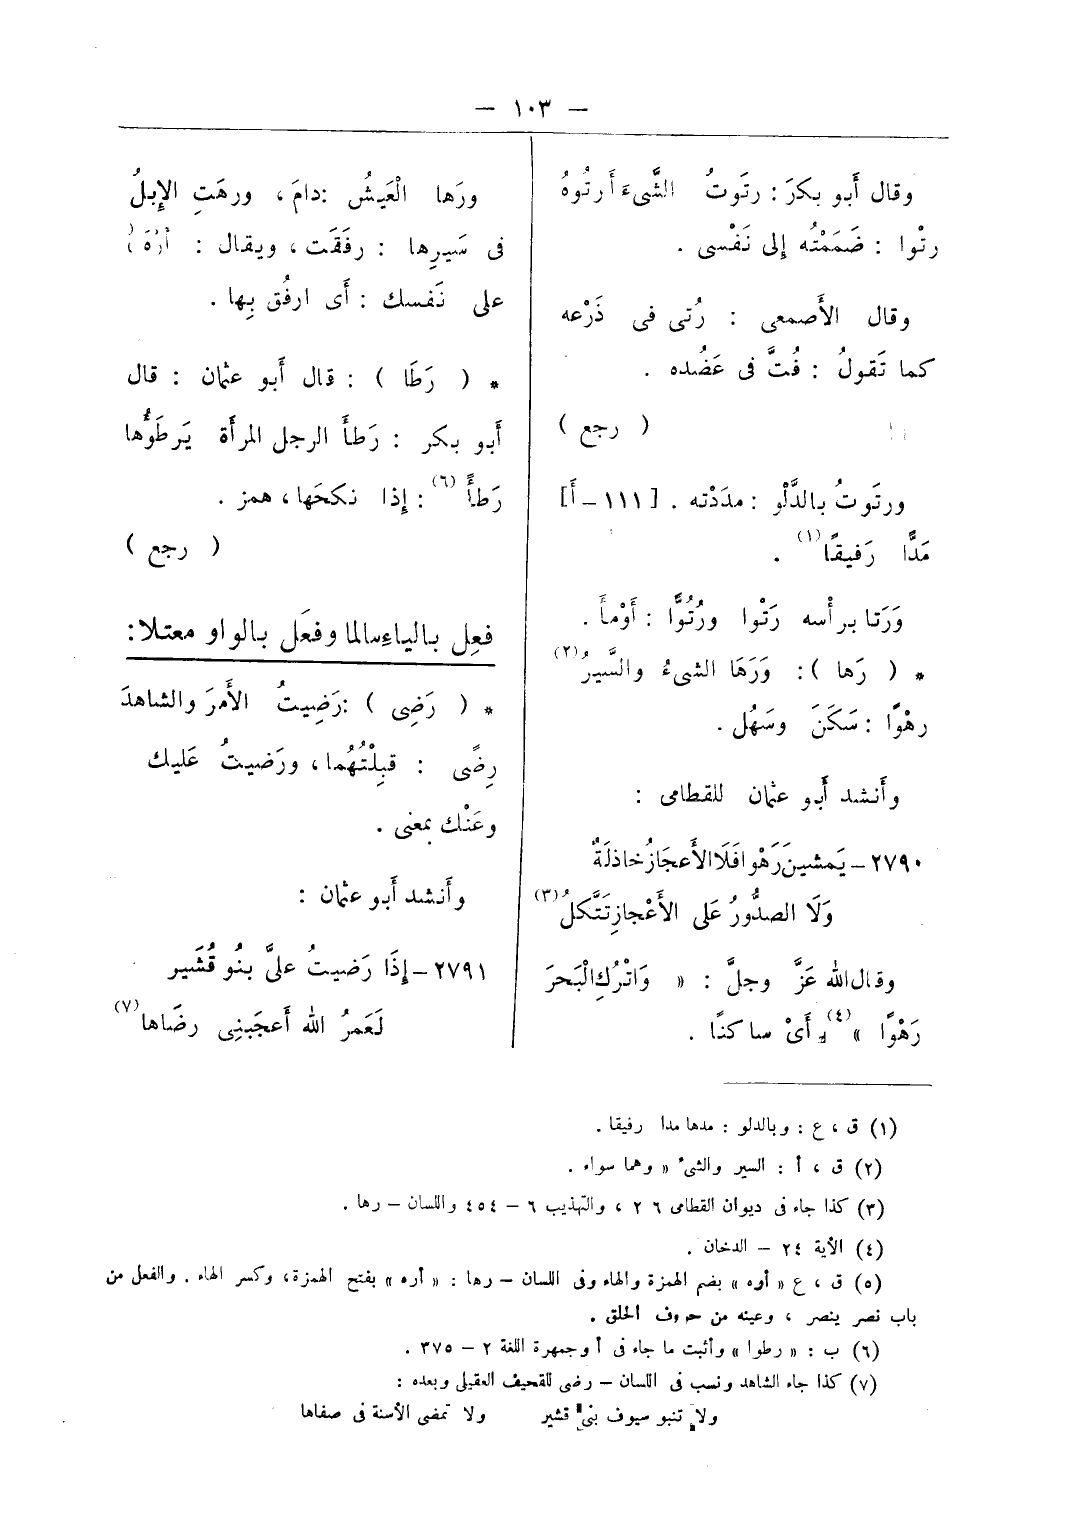 — ١٠٣ —
وقال أبو بكرَ : رتَوتُ الشَّىءَ أَرتُوهُ
رتْوا : ضَمَمْتُه إلى نَفْسى .
وقال الأَصمعى : رُتى فى ذَرْعه
كما تَقولُ : فُتَّ فى عَضُده .
( رجع )
ورتَوتُ بالدَّلْو : مدَدْته . [ ١١١ – أَ ]
مَدًّا رَفيقًا (١) .
وَرَتا برأْسه رَتْوا ورُتُوًّا : أَوْمأَ .
* ( رَها ) : وَرَهَا الشىءُ والسَّيرُ (٢)
رهْوًا : سَكَنَ وسَهُل .
وأَنشد أَبو عثمان للقطامى :
٢٧٩٠ – يَمشينَ رَهْوا فَلَا الأَعجَازُ خاذلَةٌ
وَلَا الصدُّورُ عَلى الأَعْجازِ تَتَّكلُ (٣)
وقال الله عَزَّ وجلَّ : « وَاتْرُكِ الْبَحرَ
رَهْوًا » (٤) أَىْ ساكنًا .
ورَها الْعَيشُ : دامَ ، ورهَتِ الإبلُ
فى سَيرِها : رفَقَت ، ويقال :
على نَفسك : أَى ارفُق بِها .
* ( رَطَا ) : قال أَبو عثمان : قال
أَبو بكر : رَطأَ الرجل المرأَة يَرطَؤُها
رَطأً (٦) : إذا نكحَها ، همز .
( رجع )
فعِل بالياء سالما وفعَل بالواو معتلا :
* ( رَضِى ) : رَضِيتُ الأَمرَ والشاهدَ
رِضًى : قبِلْتُهُما ، ورَضيتُ عَليك
وعَنْك بمعنى .
وأَنشد أَبو عثمان :
٢٧٩١ – إذَا رَضيتُ علىَّ بنُو قُشَير
لَعَمرُ الله أَعجَبنِى رضَاها (٧)
(١) ق ، ع : وبالدلو : مدها مدا رفيقا .
(٢) ق ، أ : السير والشىء « وهما سواء .
(٣) كذا جاء فى ديوان القطامى ٢٦ ، والتهذيب ٦ – ٤٥٤ واللسان – رها .
(٤) الأية ٢٤ – الدخان .
(٥) ق ، ع « أوه » بضم الهمزة والهاء وفى اللسان – رها : « أره » بفتح الهمزة، وكسر الهاء . والفعل من
باب نصر ينصر ، وعينه من حروف الحلق .
(٦) ب : « رطوا » وأثبت ما جاء فى أ وجمهرة اللغة ٢ – ٣٧٥ .
(٧) كذا جاء الشاهد ونسب فى اللسان – رضى للقحيف العقيلى وبعده :
ولا تنبو سيوف بنى قشير ولا تمضى الأسنة فى صفاها